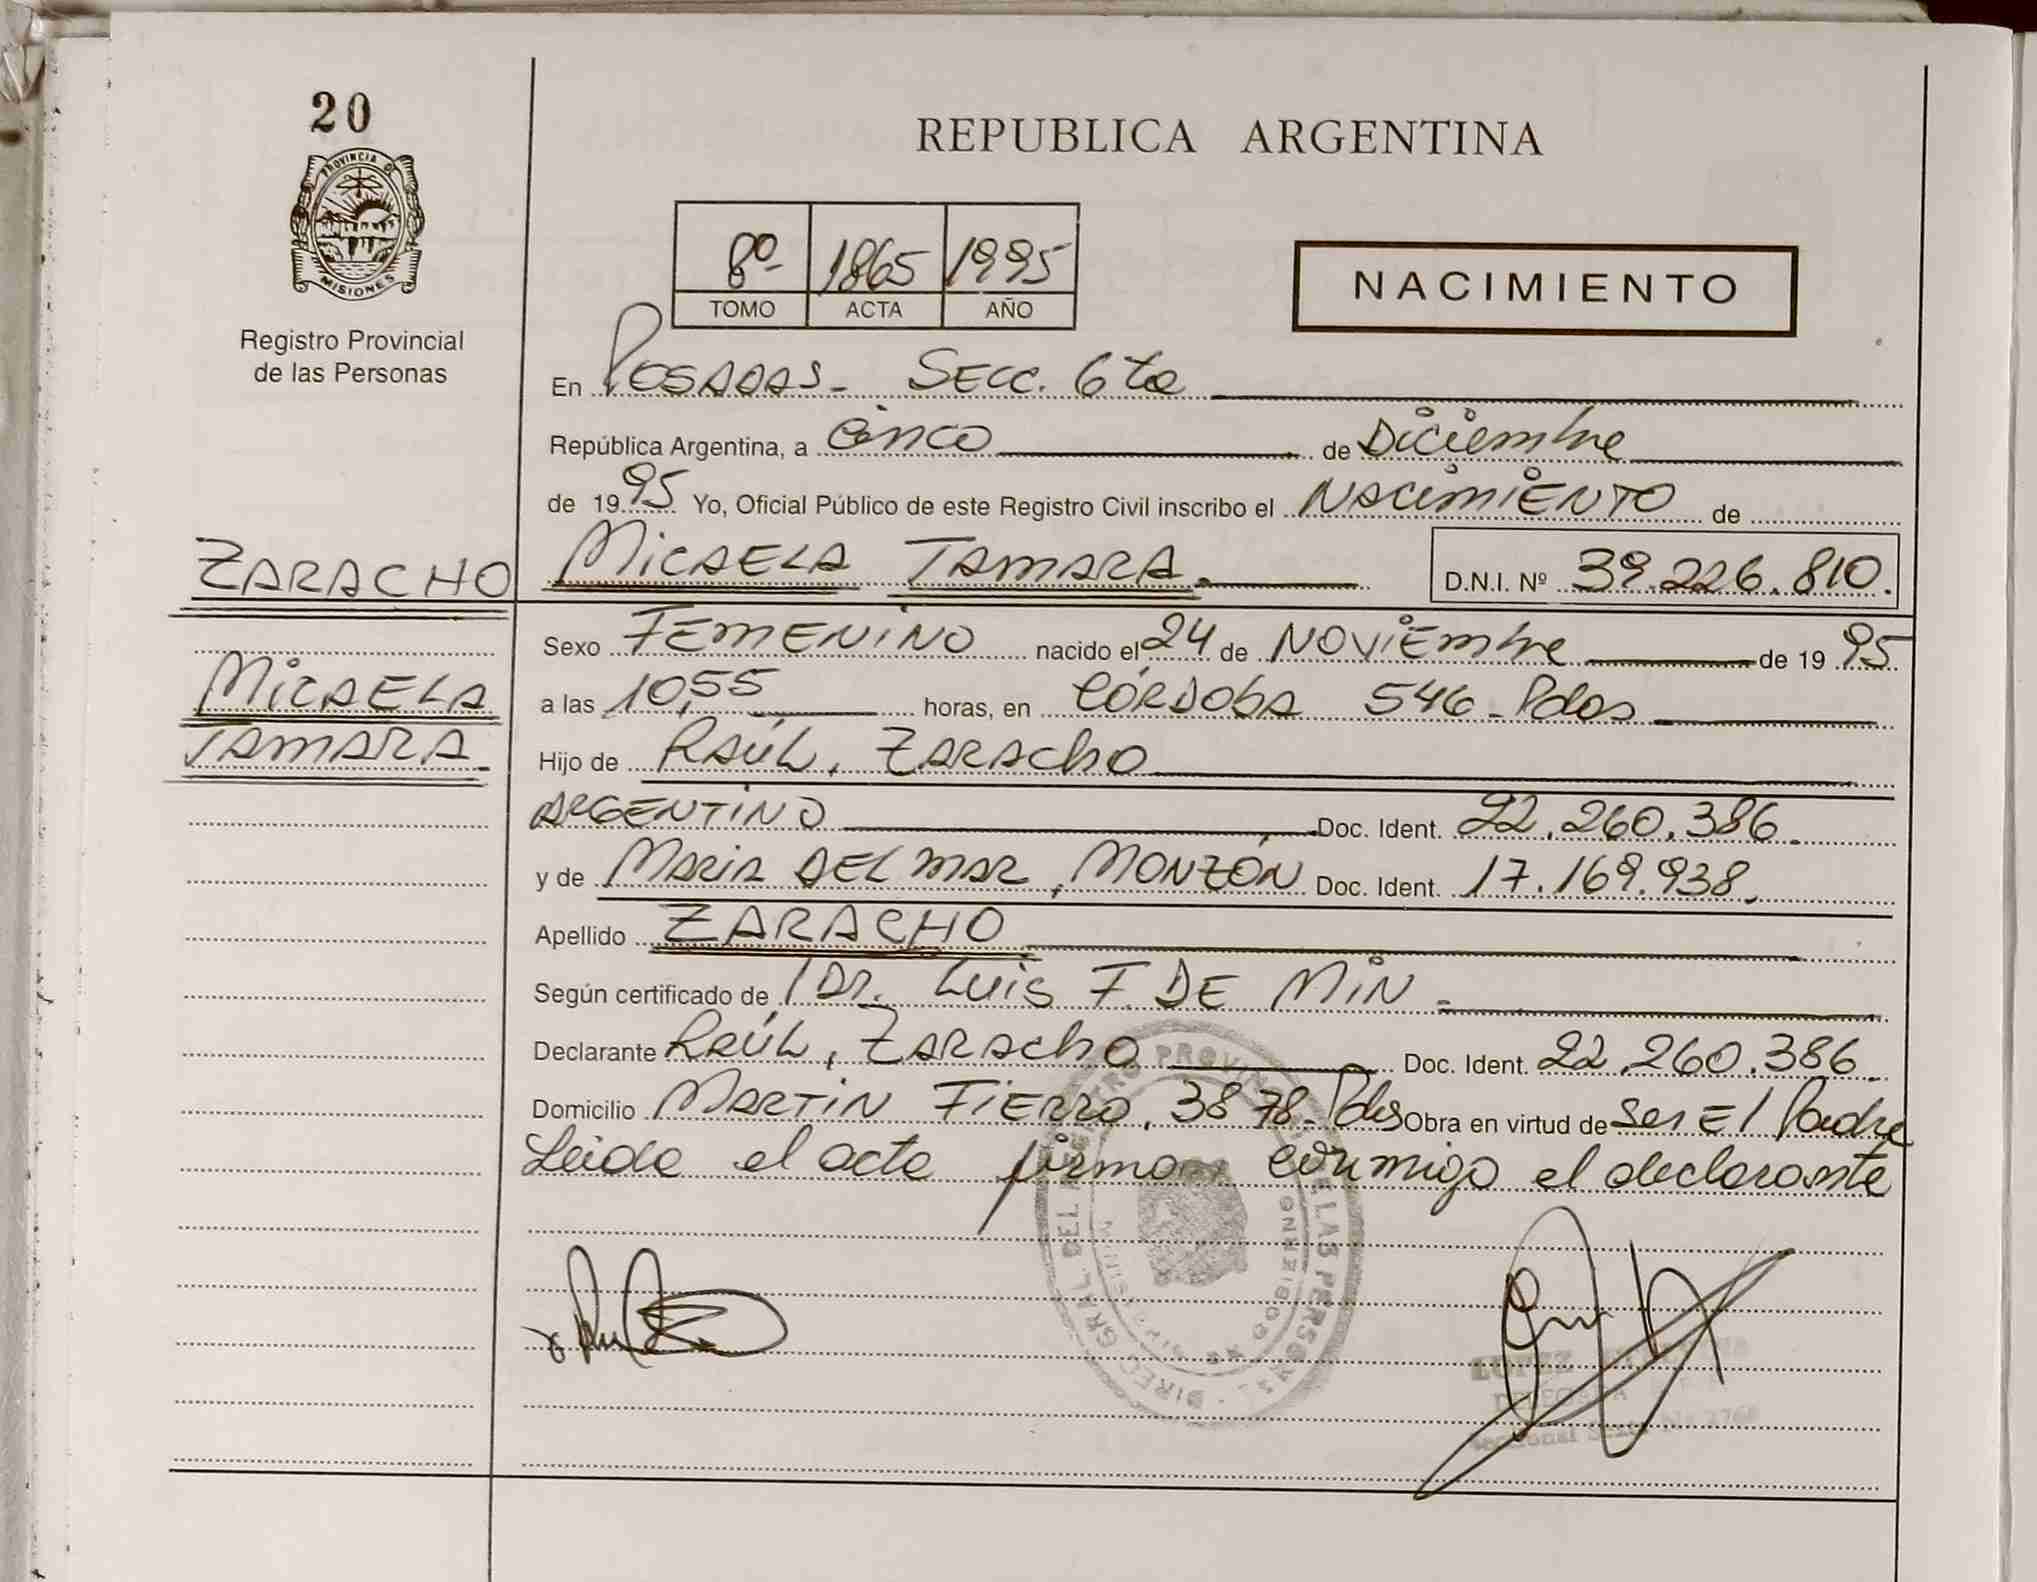 20
PROVINCIA DE
MISIONES
Registro Provincial
de las Personas
REPUBLICA ARGENTINA
8º- 1865 1995
TOMO ACTA AÑO
NACIMIENTO
En POSADAS- SECC. 6ta
República Argentina, a Cinco de Diciembre
de 1995 Yo, Oficial Público de este Registro Civil inscribo el NACIMIENTO de
ZARACHO MICAELA TAMARA. D.N.I. Nº 39.226.810.
Sexo FEMENINO nacido el 24 de NOVIEmbre de 1995
MICAELA
a las 10,55 horas, en CÓRDOBA 546-Pdas
TAMARA.
Hijo de RAÚL, ZARACHO
ARGENTINO Doc. Ident. 22.260.386.
y de MARIA DEL MAR, MONZÓN Doc. Ident. 17.169.938.
Apellido ZARACHO
Según certificado de, Dr. Luis F. DE MIN.
Declarante RAÚL, ZARACHO Doc. Ident. 22.260.386.
Domicilio MARTIN FIERRO, 3878-Pdas Obra en virtud de Ser El Padre
Leida el acta firma conmigo el declarante
DIREC. GRAL. DEL REGISTRO PROVINCIAL DE LAS PERSONAS
GOBIERNO
LOPEZ
DELEGADA
Seccional Sexta